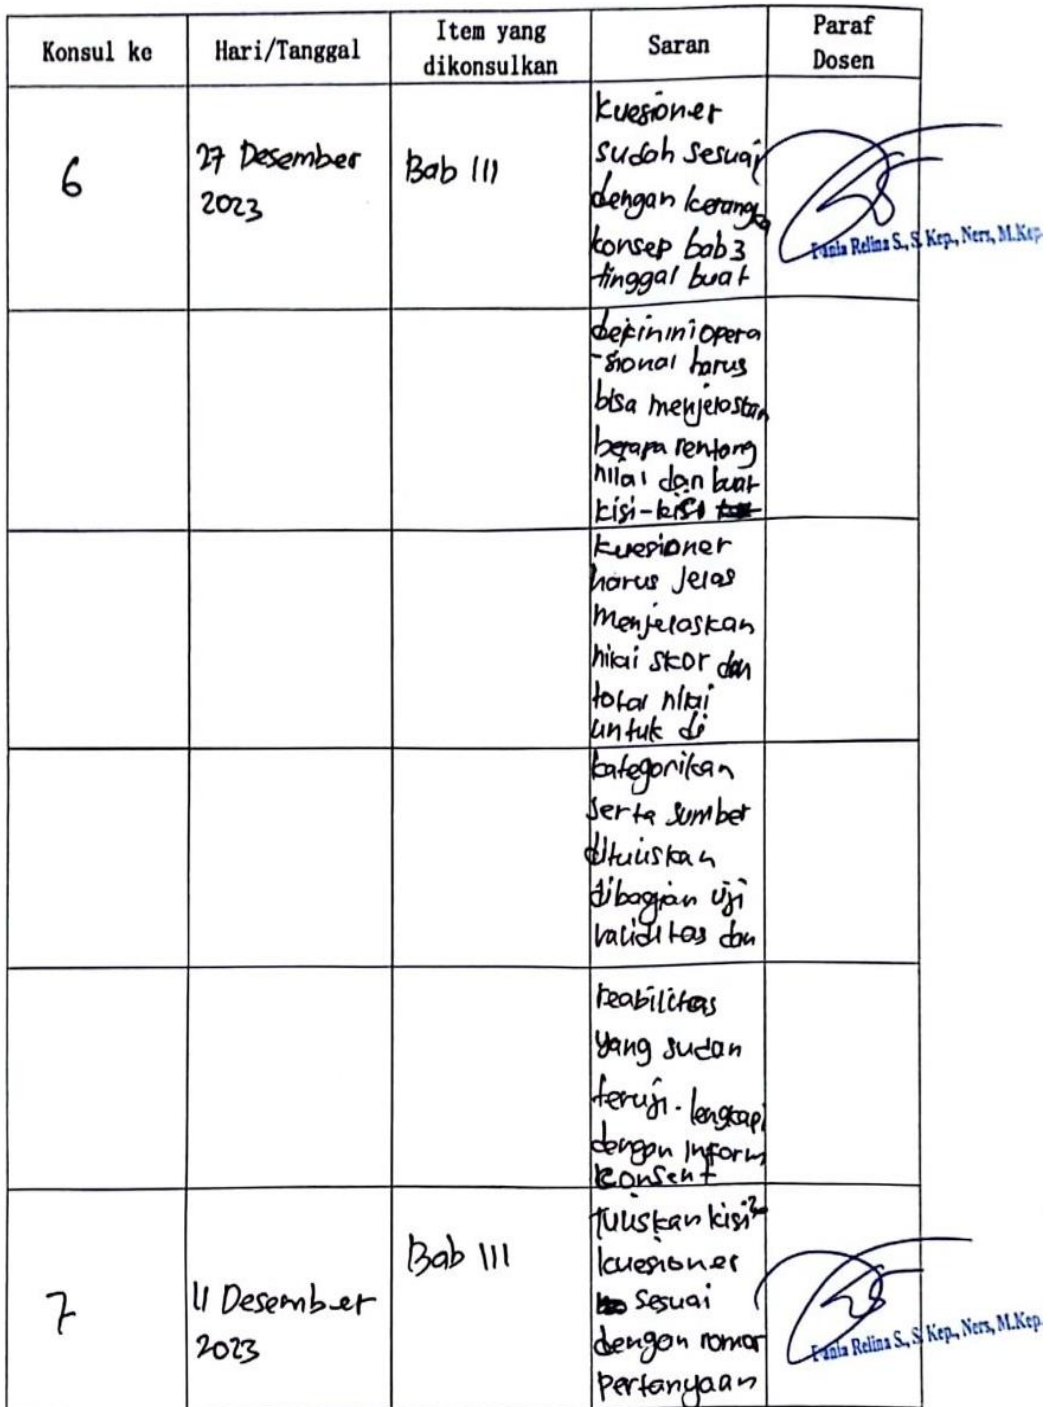 Konsul ke Hari/Tanggal Item yang dikonsulkan Saran Paraf Dosen
6 27 Desember 2023 Bab III
kuesioner
sudah sesuai
dengan kerangka
konsep bab 3
tinggal buat
Relina S., S. Kep., Ners, M.Kep.
definini opera
-sional harus
bisa menjelaskan
berapa rentang
nilai dan buat
kisi-kisi
kuesioner
harus jelas
menjelaskan
nilai skor dan
total nilai
untuk di
kategorikan
serta sumber
dituliskan
dibagian uji
validitas dan
reabilitas
yang sudah
teruji. lengkapi
dengan inform
consent
7 11 Desember 2023 Bab III
Tuliskan kisi²
kuesioner
sesuai
dengan nomor
pertanyaan
Relina S., S. Kep., Ners, M.Kep.